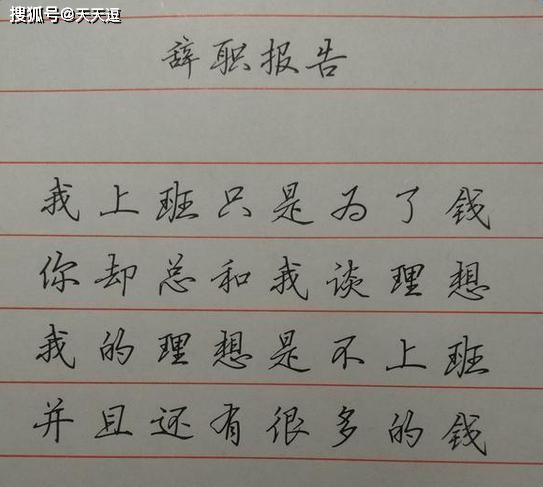 搜狐号@天天逗
辞职报告
我上班只是为了钱
你却总和我谈理想
我的理想是不上班
并且还有很多的钱